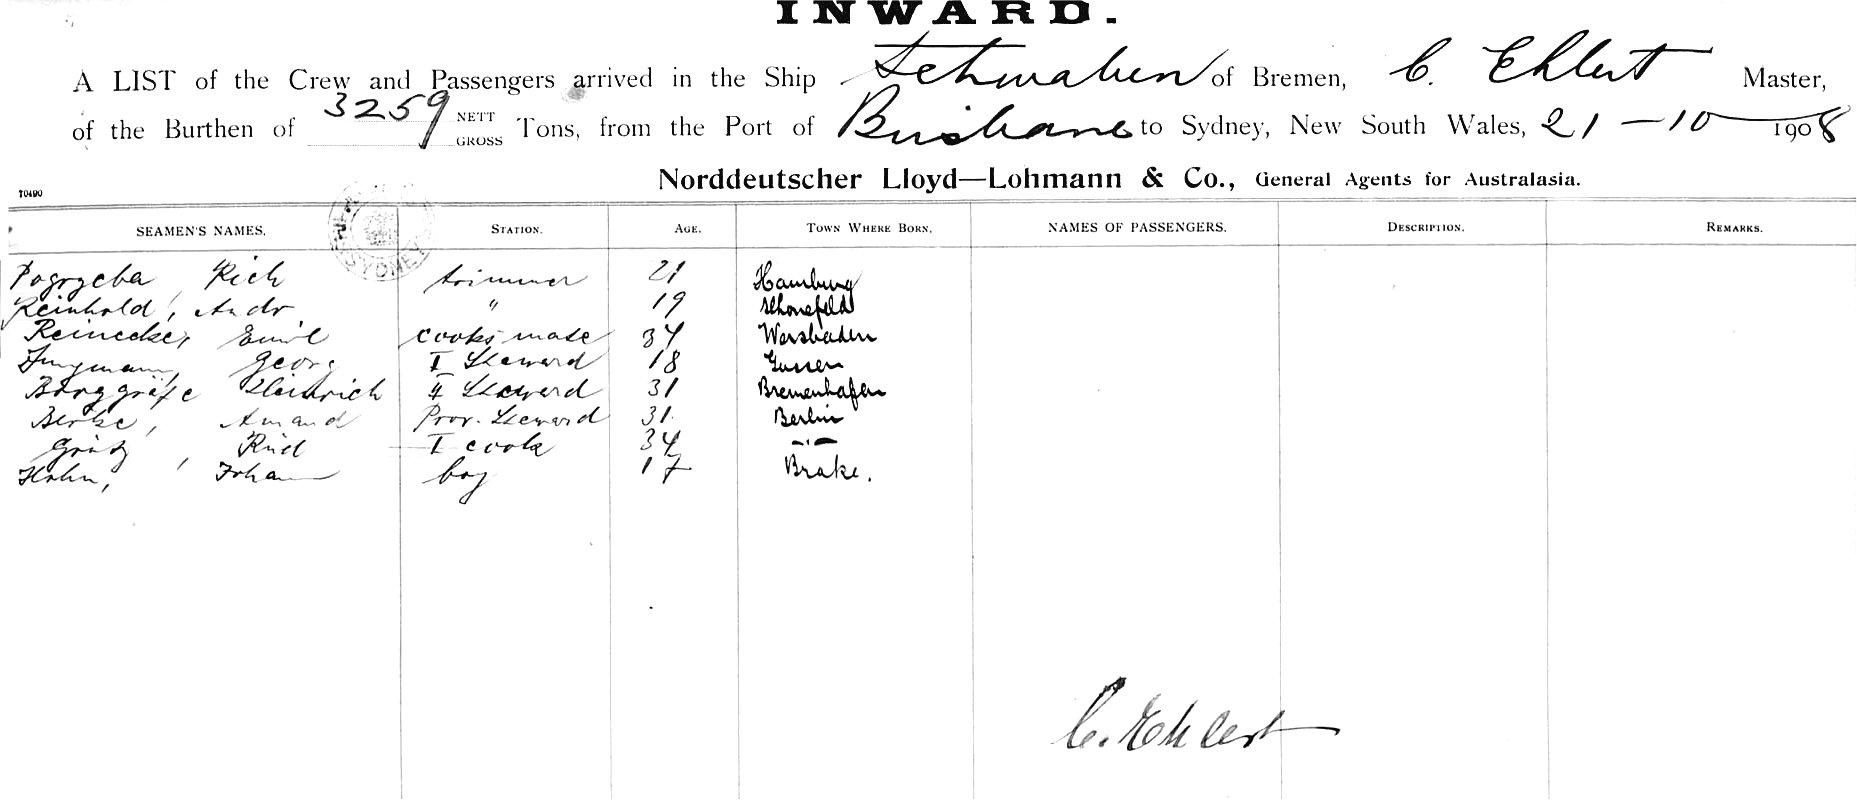 INWARD.
A LIST of the Crew and Passengers arrived in the Ship Schwaben of Bremen, C. Ehlert Master,
of the Burthen of 3259 NETT GROSS Tons, from the Port of Brisbane to Sydney, New South Wales, 21-10 1908
Norddeutscher Lloyd—Lohmann & Co., General Agents for Australasia.
70490
SEAMEN'S NAMES. STATION. AGE. TOWN WHERE BORN. NAMES OF PASSENGERS. DESCRIPTION. REMARKS.
SYDNEY
Pogrzeba, Rich trimmer 21 Hamburg
Reinhold, Andr " 19 Schonefeld
Reinecke, Emil cooks mate 34 Wiesbaden
Jungmann, Georg I Steward 18
Borggräfe Heinrich II Steward 31 Bremenhafen
Amand Prov. Steward 31 Berlin
Rud I cook 34 -"-
Hahn, Johann boy 17 Brake.
C. Ehlert